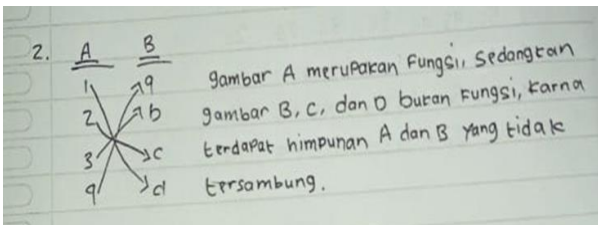 2. A B
1 a gambar A merupakan Fungsi, sedangkan
2 b gambar B, C, dan D bukan Fungsi, karna
3 c terdapat himpunan A dan B yang tidak
4 d tersambung.